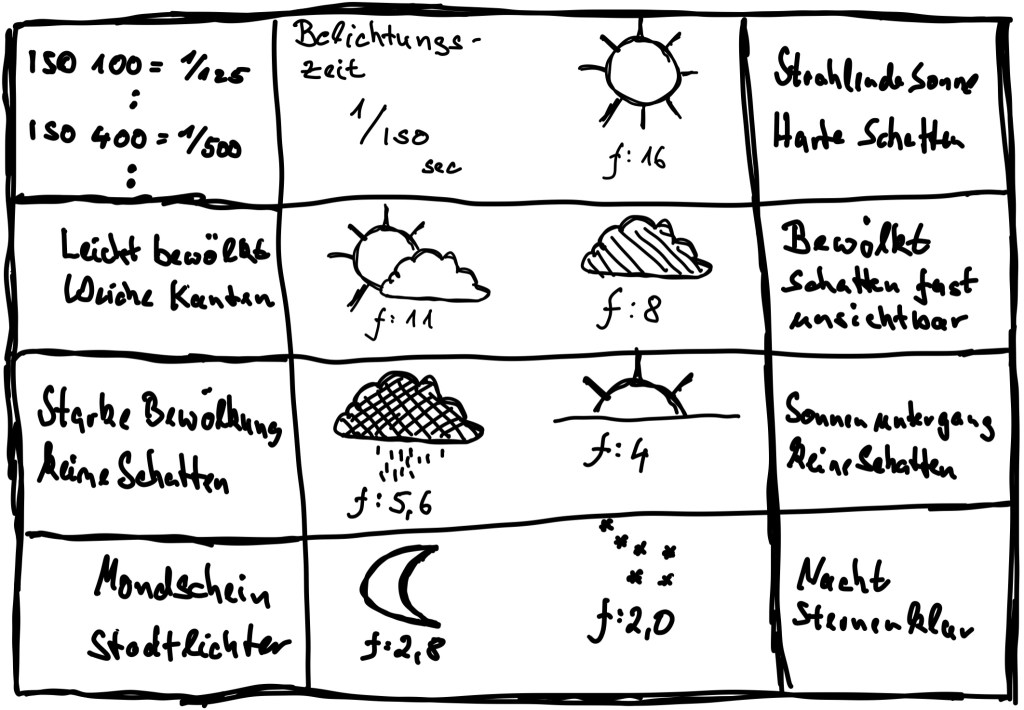 ISO 100 = 1/125
:
ISO 400 = 1/500
:
Belichtungs-
zeit
1/ISO
sec
f:16
Strahlende Sonne
Harte Schatten
Leicht bewölkt
Weiche Kanten
f:11
f:8
Bewölkt
Schatten fast
unsichtbar
Starke Bewölkung
keine Schatten
f:5,6
f:4
Sonnenuntergang
keine Schatten
Mondschein
Stadtlichter
f:2,8
f:2,0
Nacht
Sternenklar